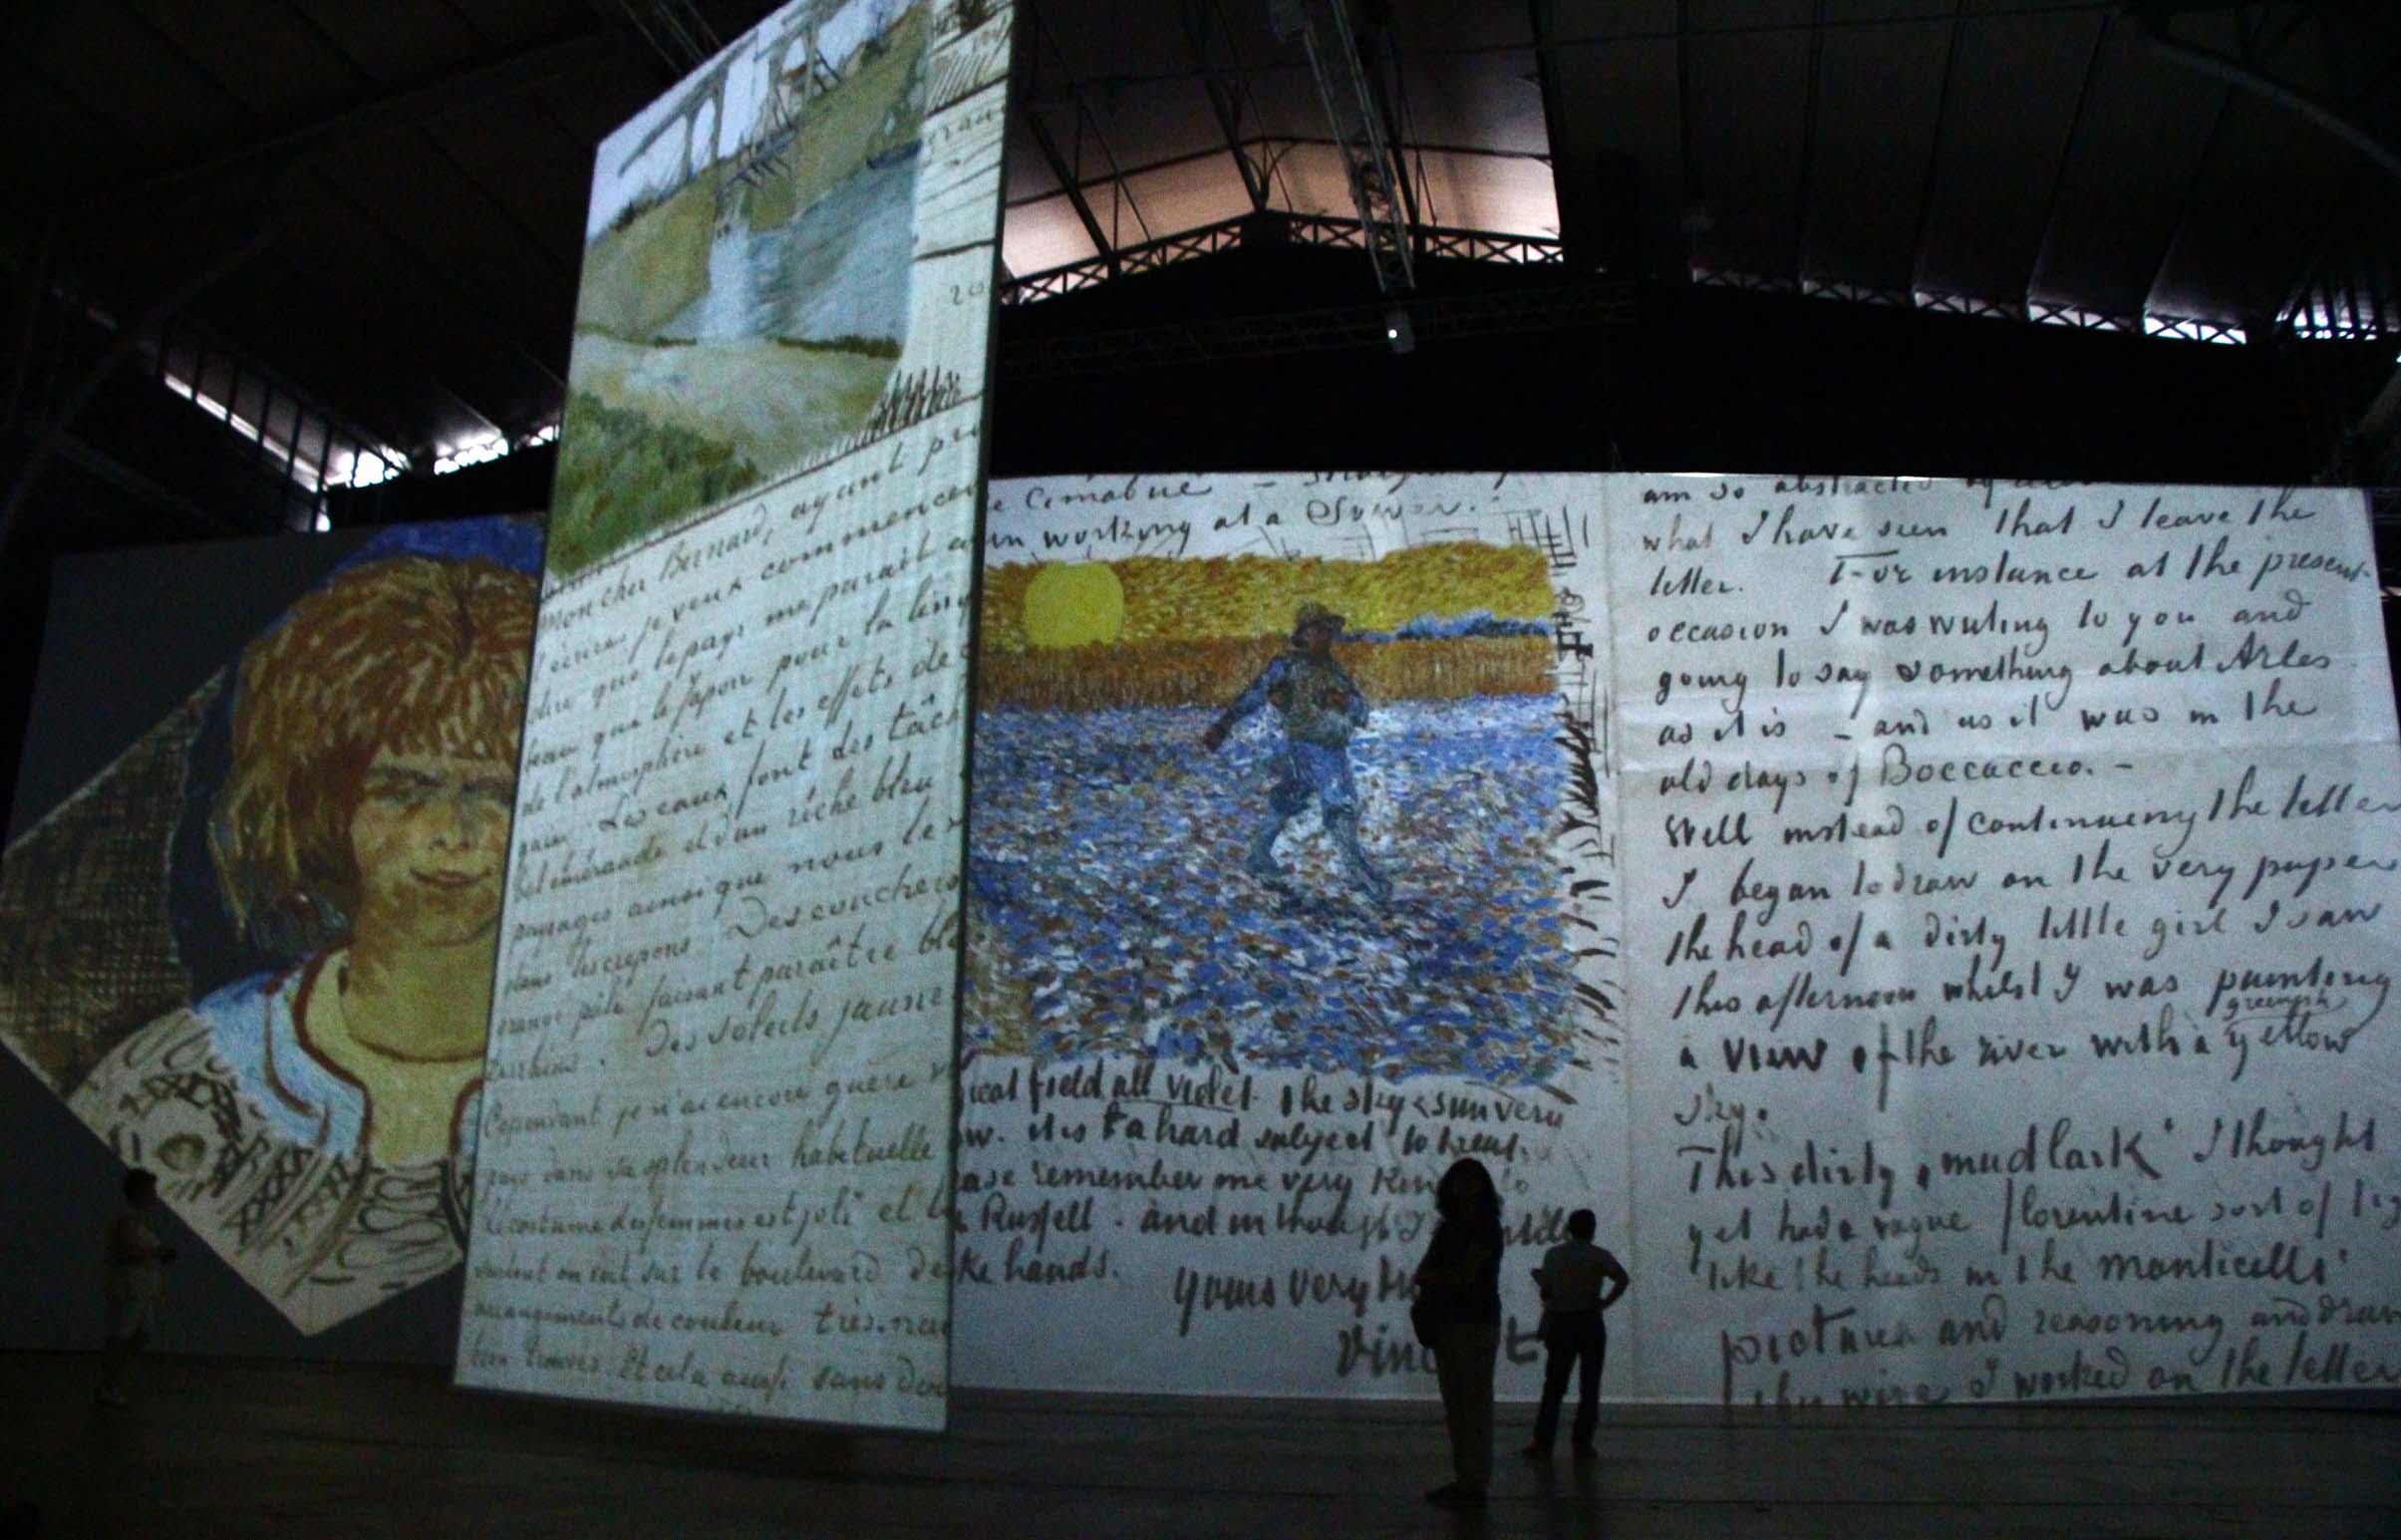 Mon cher Bernard, ayant
t'écrire je veux commencer
dire que le pays me parait
beau que le Japon pour la
de l'atmosphère et les effets de
Les eaux font des
bel émeraude et d'un riche bleu
paysages ainsi que nous le
dans les crepons. Des couchers
orange pâle faisant paraître
Des soleils jaunes
Cependant je n'ai encore guère
pays dans sa splendeur habituelle
Le costume des femmes est joli et
surtout on voit sur le boulevard
arrangements de couleur très
bien trouvés. Et cela aussi sans
20
Cimabue –
working at a Sower.
field all violet. The sky & sun very
it is a hard subject to treat.
remember me very
Russell. and in thought I
hands.
yours very
Vincent
am so abstracted
what I have seen that I leave the
letter. For instance at the present
occasion I was writing to you and
going to say something about Arles
as it is – and as it was in the
old days of Boccaccio. –
Well instead of continuing the letter
I began to draw on the very paper
the head of a dirty little girl I saw
this afternoon whilst I was painting
a view of the river with a greenish yellow
sky.
This dirty 'mudlark' I thought
yet had a vague florentine sort of
like the heads in the monticelli
pictures and reasoning and
I worked on the letter